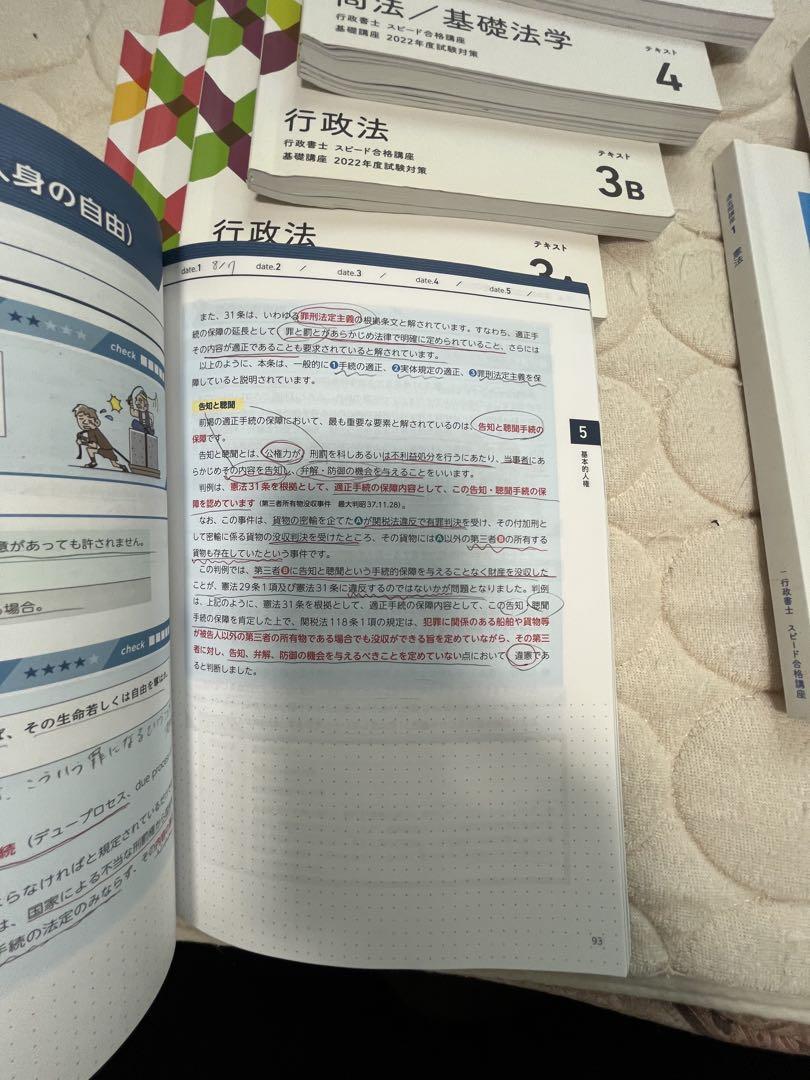 商法／基礎法学
行政書士 スピード合格講座
基礎講座 2022年度試験対策
テキスト
4
行政法
行政書士 スピード合格講座
基礎講座 2022年度試験対策
テキスト
3B
行政法
テキスト
人身の自由）
date.1 8/7 date.2 / date.3 / date.4 / date.5 /
また、31条は、いわゆる罪刑法定主義の根拠条文と解されています。すなわち、適正手
続の保障の延長として、罪と罰とがあらかじめ法律で明確に定められていること、さらには
その内容が適正であることも要求されていると解されています。
以上のように、本条は、一般的に❶手続の適正、❷実体規定の適正、❸罪刑法定主義を保
障していると説明されています。
告知と聴聞
前掲の適正手続の保障において、最も重要な要素と解されているのは、告知と聴聞手続の
保障です。
告知と聴聞とは、公権力が、刑罰を科しあるいは不利益処分を行うにあたり、当事者にあ
らかじめその内容を告知し、弁解・防御の機会を与えることをいいます。
判例は、憲法31条を根拠として、適正手続の保障内容として、この告知・聴聞手続の保
障を認めています（第三者所有物没収事件 最大判昭37.11.28）。
なお、この事件は、貨物の密輸を企てたAが関税法違反で有罪判決を受け、その付加刑と
して密輸に係る貨物の没収判決を受けたところ、その貨物にはA以外の第三者Bの所有する
貨物も存在していたという事件です。
この判例では、第三者Bに告知と聴聞という手続的保障を与えることなく財産を没収した
ことが、憲法29条1項及び憲法31条に違反するのではないかが問題となりました。判例
は、上記のように、憲法31条を根拠として、適正手続の保障内容として、この告知・聴聞
手続の保障を肯定した上で、関税法118条1項の規定は、犯罪に関係のある船舶や貨物等
が被告人以外の第三者の所有物である場合でも没収ができる旨を定めていながら、その第三
者に対し、告知、弁解、防御の機会を与えるべきことを定めていない点において、違憲であ
ると判断しました。
5
基本的人権
93
check
意があっても許されません。
場合。
check
ば、その生命若しくは自由を奪は
こういう罪になるという
続（デュープロセス、due proce
よらなければと規定されている
は、国家による不当な刑罰権か
手続の法定のみならず、その
憲法
行政書士 スピード合格講座